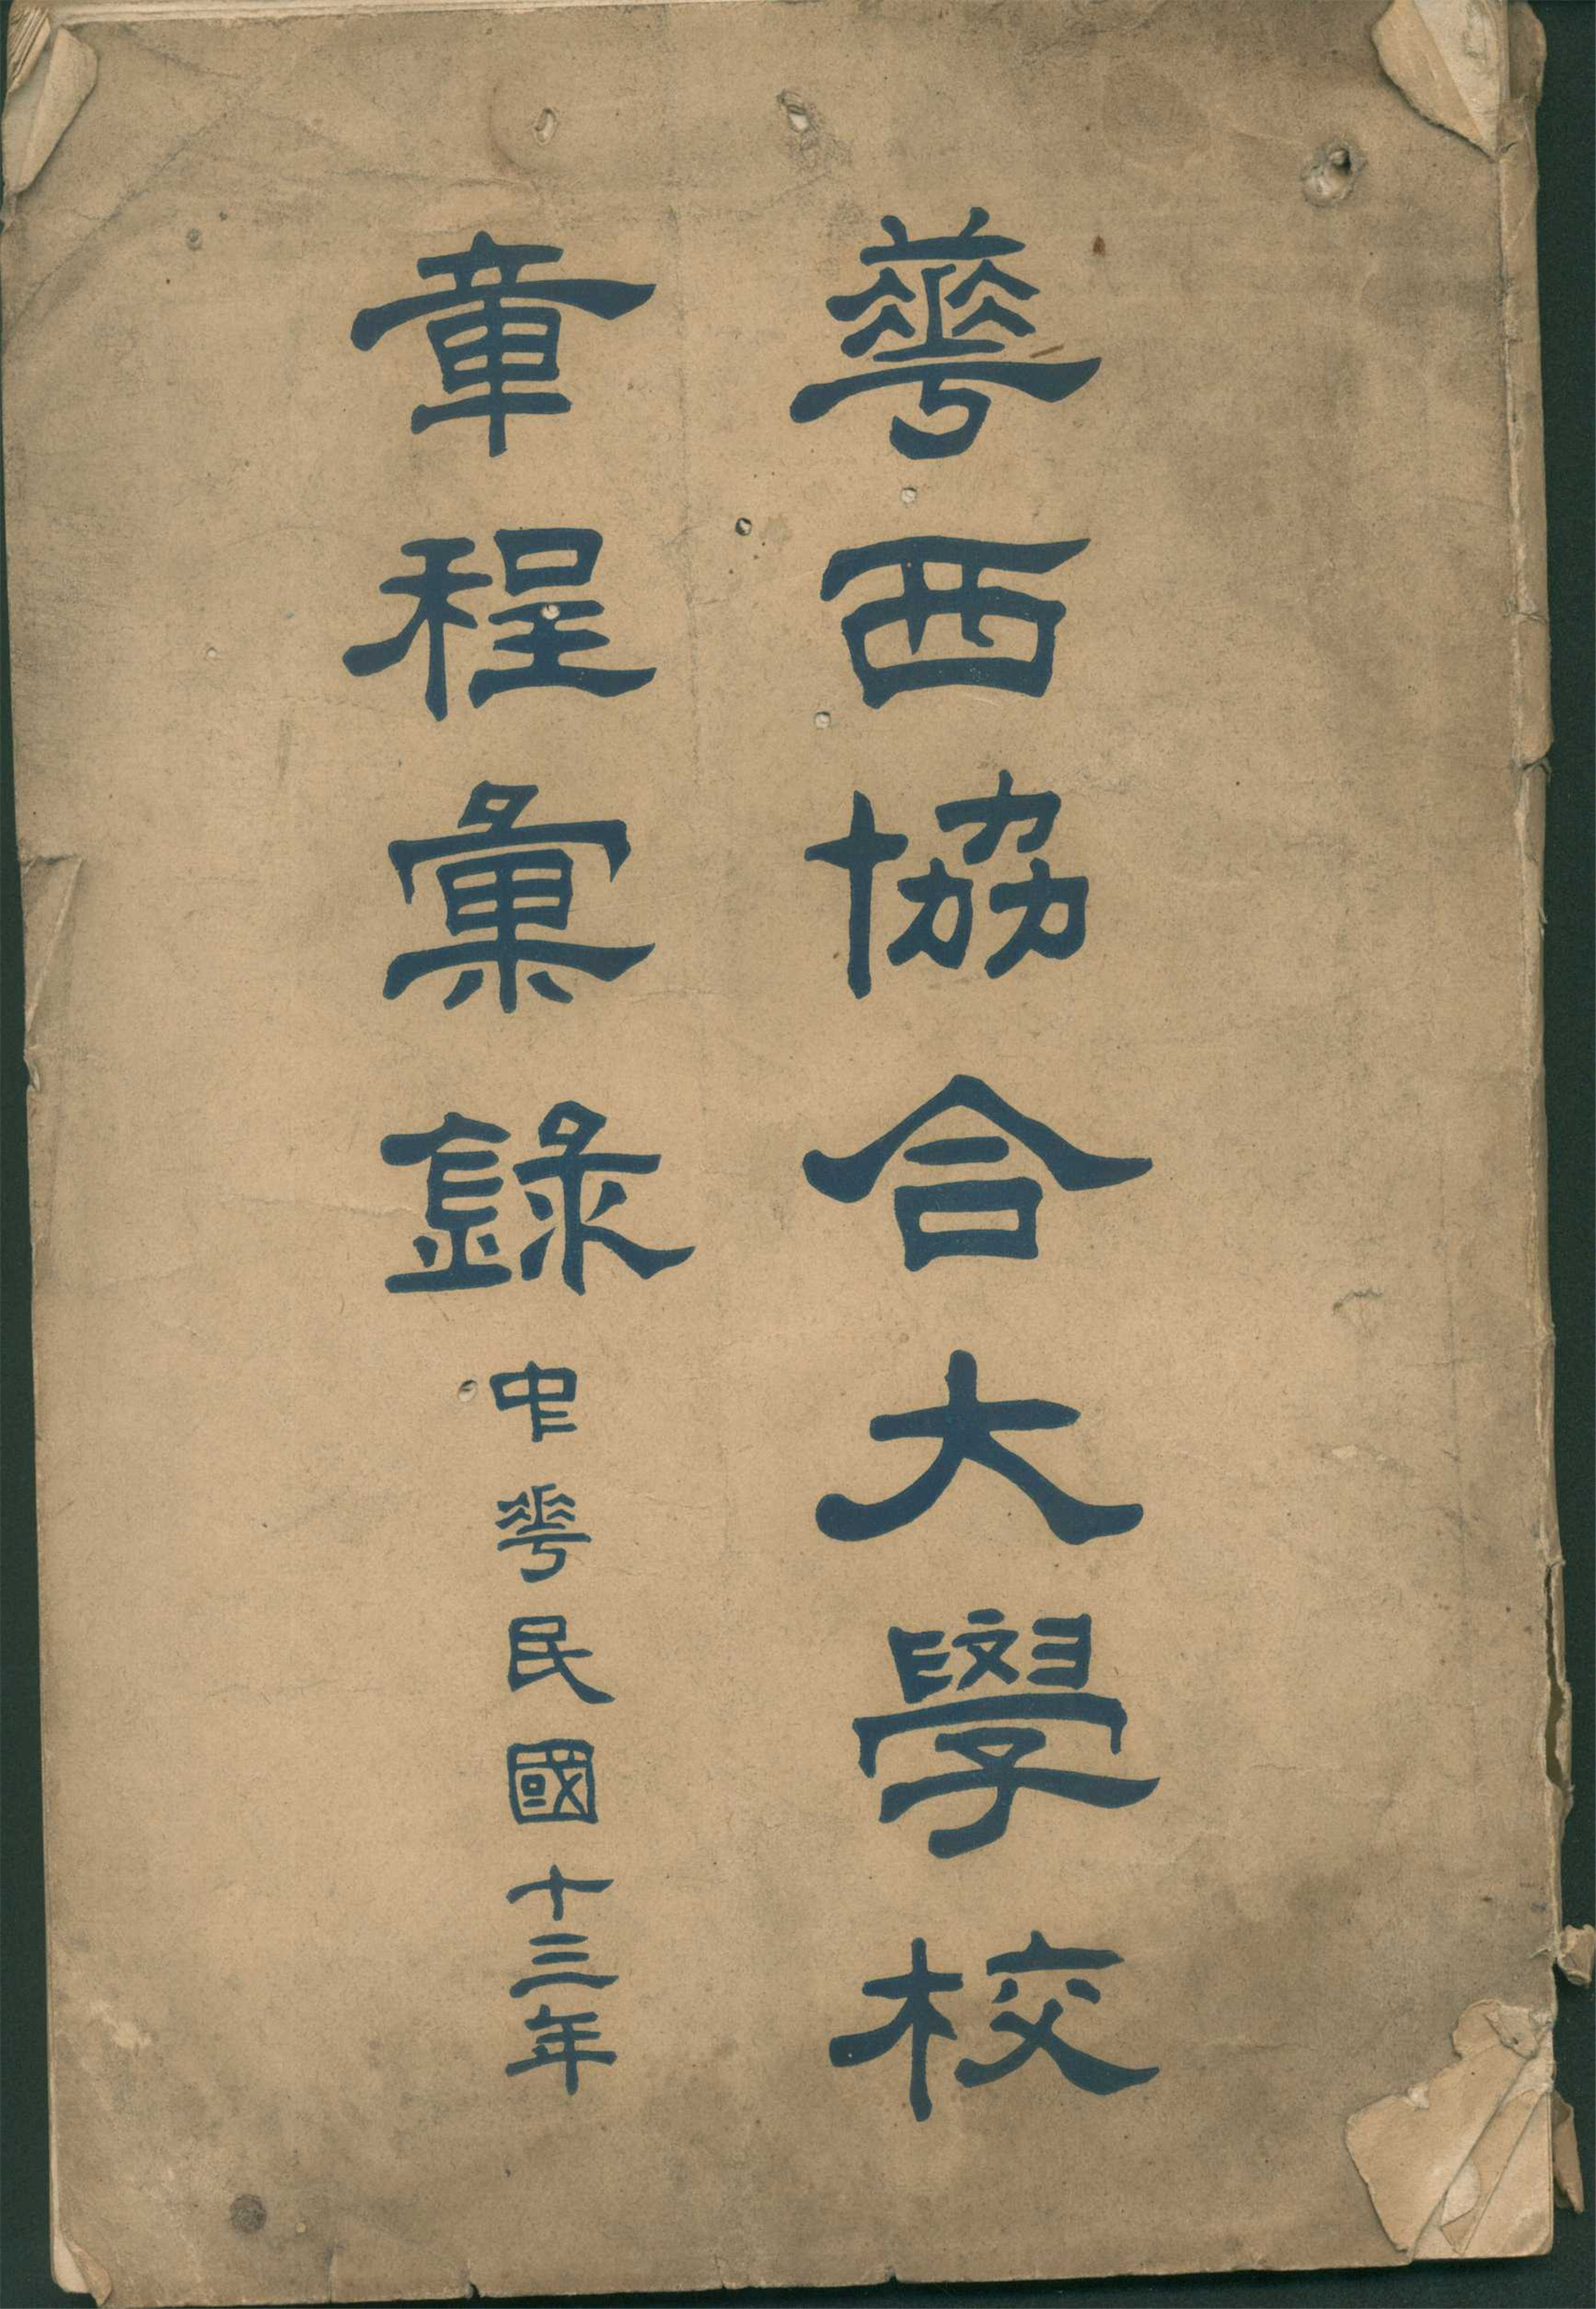 華西協合大學校
章程彙錄中華民國十三年